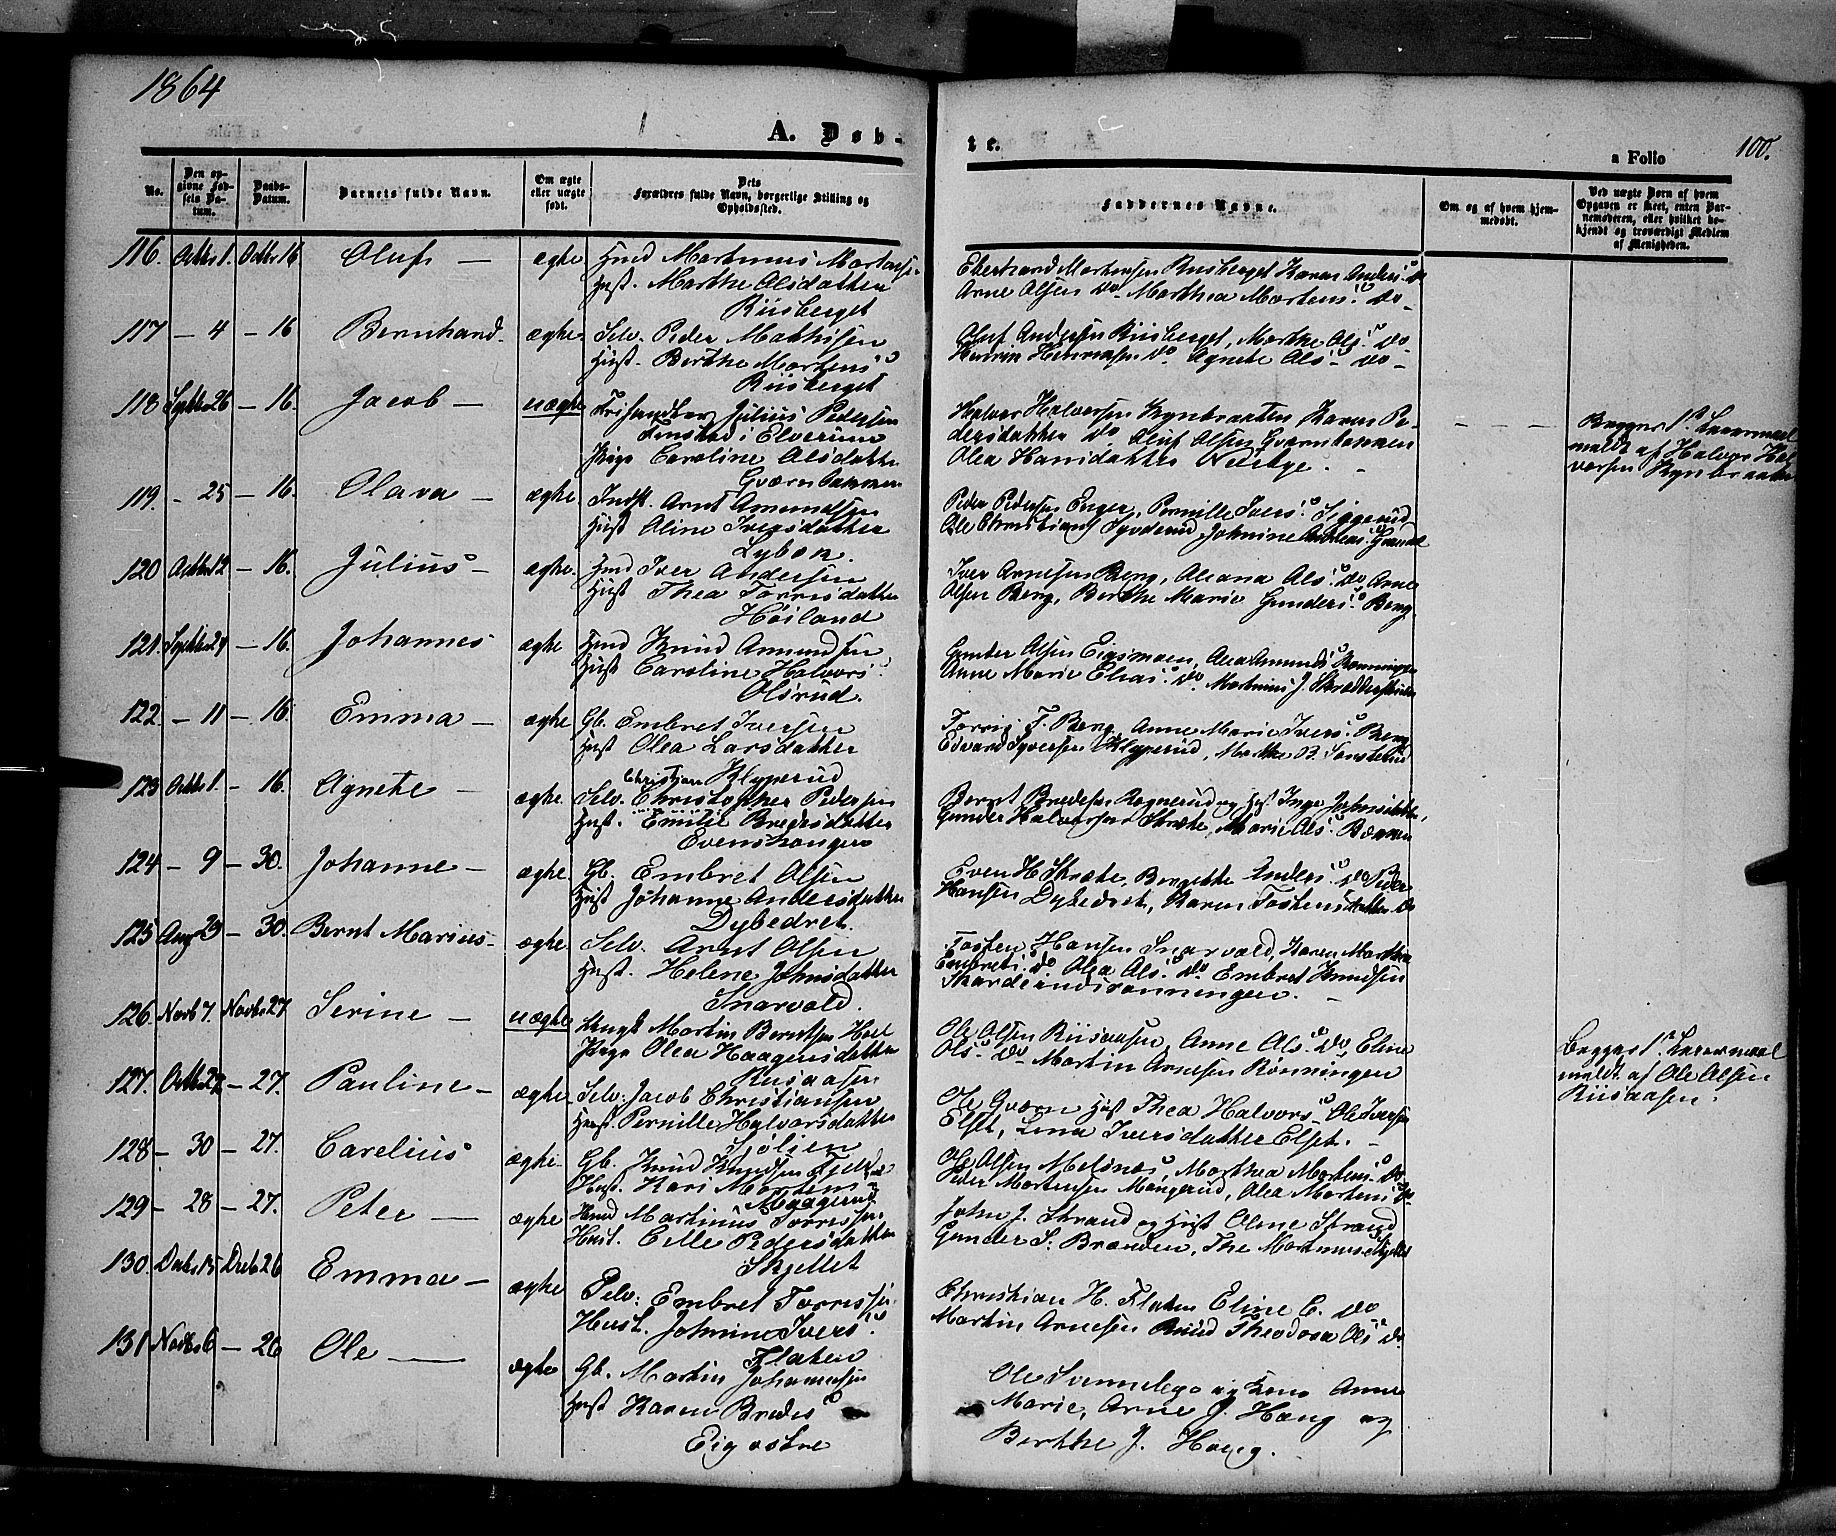 1864
A. Døb-
te.
a Folio
100.
No.
Den opgivne Fødsels Datum.
Daabs-Datum.
Barnets fulde Navn.
Om ægte eller uægte født.
Dets Forældres fulde Navn, borgerlige Stilling og Opholdssted.
Faddernes Navne.
Om og af hvem hjemmedøbt.
Ved uægte Børn af hvem Opgaven er skeet, enten Barnemoderen, eller hvilket bekjendt og troværdigt Medlem af Menigheden.
116. Octbr 1. Octbr 16 Oluf — ægte Hmd Martinus Mortensen
Hust. Marthe Olsdatter
Riisberget
Arne Olsen do. Marthea Mortens. do-
117 — 4 — 16 Bernhard. ægte. Selv. Peder Mathisen
Hust. Berthe Mortens
Riisberget
Oluf Andersen Riisberget, Marthe Ols. do
do Agnete Ols. do -
118 Septbr 26 — 16. Jacob — uægte Julius Pedersen
i Elverum
Pige Caroline Olsdatter
Halvor Halvorsen Kynbraaten Karen Pe-
dersdatter do Oluf Olsen
Olea Hansdatter
Begges 1ste Leiermaal
meldt af Halvor Hal
vorsen Kynbraaten
119. — 25 — 16. Olava — ægte Indst. Arnt Amundsen
Hust Aline Iversdatter
Peder Pedersen Enger, Pernille Ivers.
Ole Christians Johnine
120 Octbr 12 — 16. Julius — ægte. Hmd Iver Andersen
Hust Thea Torrisdatter
Høiland
Iver Arnesen Berg, Oleana Ols. do, Arne
Olsen Berg, Berthe Marie Gunders. Berg
121. Septbr 24 — 16. Johannes ægte Hmd Knud Amundsen
Hust Caroline Halvors.
Olsrud.
Gunder Olsen Eigsmoen, Olea Amunds Rønningen
Anne Marie Elias. do. Martinus J.
122. — 11 — 16. Emma — ægte Gb. Embret Iversen
Hust Olea Larsdatter
Klyperud
F. Berg, Anne Marie Ivers. Berg
Edvard Syversen Klyperud, Marthe B.
123 Octbr 1. — 16. Agnete — ægte. Selv. Christopher Pedersen
Christian
Hust. Emilie Bredesdatter
Evenshaugen
Bernt Bredesen Rognerud og Hust Inge
Gunder Halvorsen Skræte, Marie Ols.
124 — 9 — 30. Johanne — ægte. Gb. Embret Olsen
Hust Johanne Andersdatter
Dybedret.
Even H Skræte, Bergitte Anders. do Peder
Hansen Dybedret, Karen Tostensdatter do
125 Aug 23 — 30. Bernt Marius. ægte Selv. Arnt Olsen
Hust. Helene Johnsdatter
Snarvold.
Tosten Hansen Snarvold, Karen Marthea
Embrets. do Olea Ols. do. Embret Knudsen
126. Novb 7. Novbr 27 Serine — uægte Ungk Martin Berntsen
Pige Olea Haagensdatter
Riisaasen
Ole Olsen Riisaasen, Anne Ols. do, Eline
Ols. do Martin Arnesen Rønningen
Begges 1ste Leiermaal
meldt af Ole Olsen
Riisaasen.
127. Octbr 27 — 27. Pauline — ægte. Selv: Jacob Christiansen
Hust. Pernille Halvorsdatter
Sjølien
Ole Qværn Hust Thea Halvors. Ole Iversen
Elset, Lina Iversdatter Elset.
128 — 30 — 27. Carelius ægte. Gb. Knud Knudsen
Hust. Kari Mortens
Ole Olsen Melsnes, Marthea Mortens. do.
Peder Mortensen Mangerud, Olea Mortens do
129 — 28 — 27. Peter — ægte Hmd Martinus Torrissen
Hust. Eille Pedersdatter
Skjellet
John J. Strand og Hust Oline Strand
Gunder S. Brænden, The
130. Decbr 15 Decb 26 Emma — ægte Selv: Embret Torrissen
Hust. Johnine Ivers.
Flaten
Christian H. Flaten Eline C. do
Martin Arnesen Theodora Ols do.
131 Novbr 6 — 26 Ole — ægte Gb. Martin Johannesen
Hust Karen Bredes
Eig østre
Ole og Kone Anne
Marie, Arne J. Haug og
Berthe J. Haug.